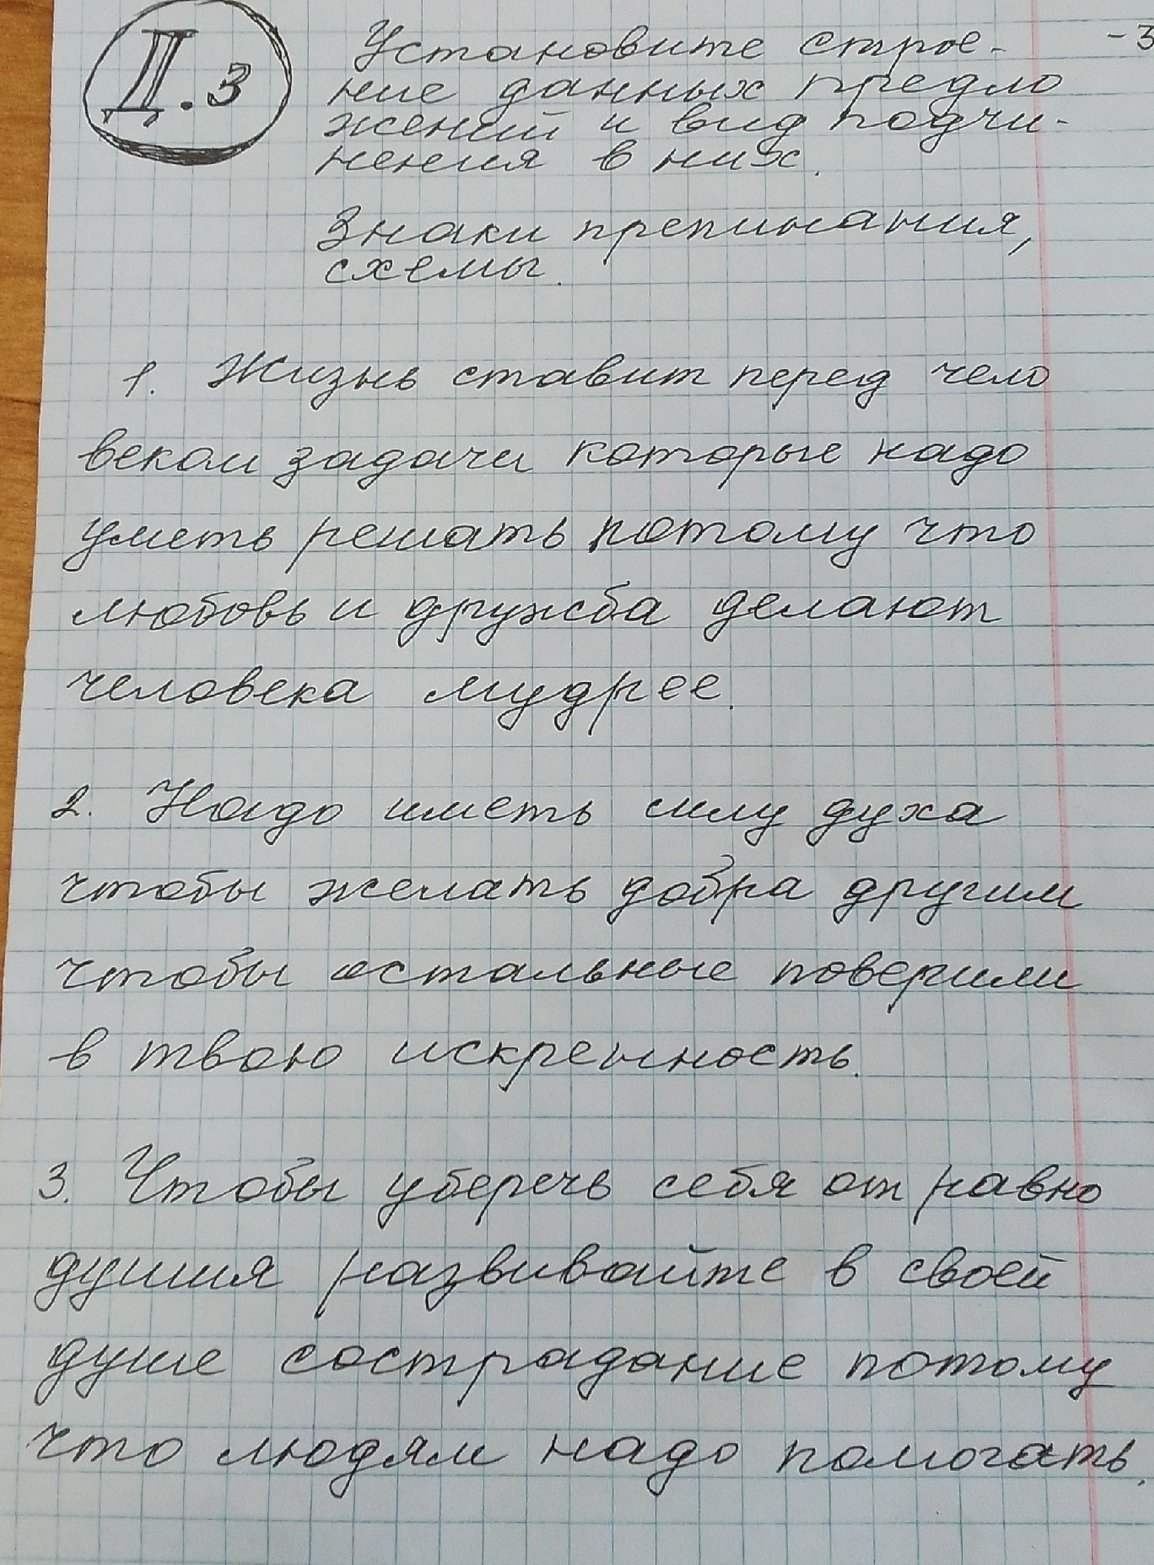 Д.З
Установите строе-
ние данных предло
жений и вид подчи-
нения в них.
Знаки препинания,
схемы.
-3
1. Жизнь ставит перед чело
веком задачи которые надо
уметь решать потому что
любовь и дружба делают
человека мудрее.
2. Надо иметь силу духа
чтобы желать добра другим
чтобы остальные поверили
в твою искренность.
3. Чтобы уберечь себя от равно
душия развивайте в своей
душе сострадание потому
что людям надо помогать.